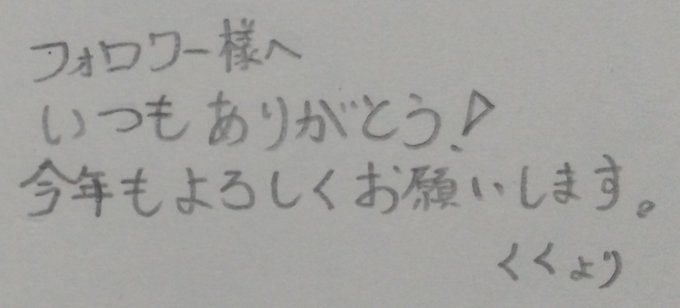 フォロワー様へ
いつもありがとう!
今年もよろしくお願いします。
くくより